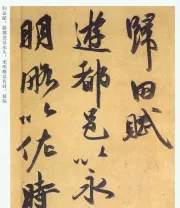 歸田賦
遊都邑以永
明略以佐時